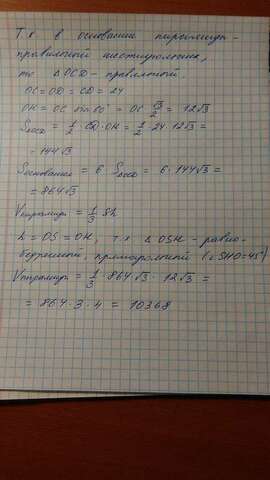 Т.к в основании пирамиды -
правильный шестиугольник,
то △OCD - правильный.
OC = OD = CD = 24
OH = OC sin 60° = OC √3/2 = 12√3
S OCD = 1/2 CD · OH = 1/2 · 24 · 12√3 =
= 144√3
S основания = 6 S OCD = 6 · 144√3 =
= 864√3
V пирамиды = 1/3 Sh
h = OS = OH, т.к △ OSH - равно-
бедренный, прямоугольный (∠SHO = 45°)
V пирамиды = 1/3 · 864√3 · 12√3 =
= 864 · 3 · 4 = 10368